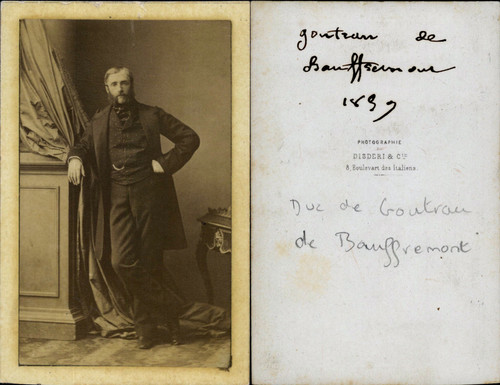 gontran de
Bauffremont
1859
PHOTOGRAPHIE
DE
DISDERI & Cie
8, Boulevart des Italiens.
Duc de Gontran
de Bauffremont